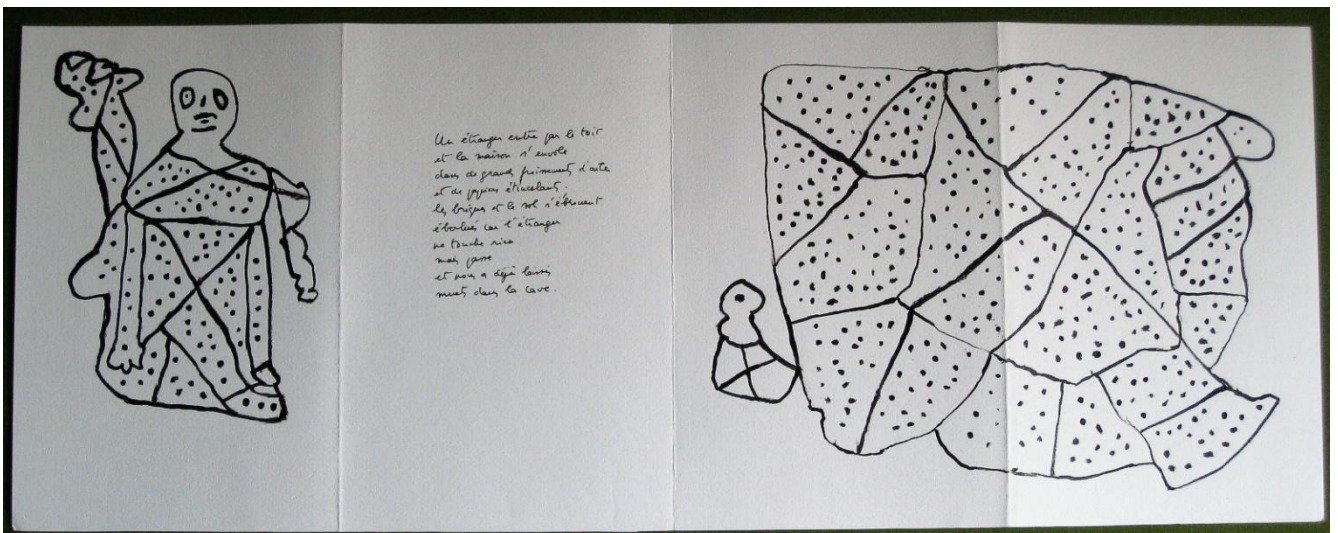 Un étranger entre par le toit
et la maison s'envole
dans de grands froissements d'ailes
et de papiers étincelants.
les briques et le sol s'étreignent
éboulés car l'étranger
ne touche rien
mais passe
et nous a déjà laissés
muets dans la cave.